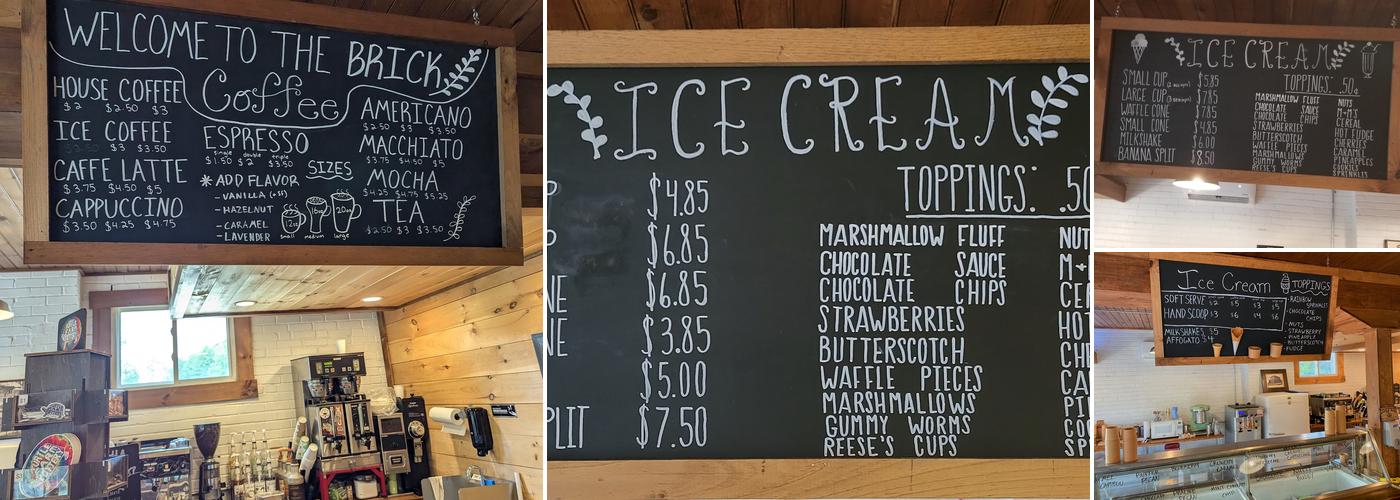 WELCOME TO THE BRICK
Coffee
HOUSE COFFEE
$2 $2.50 $3
ICE COFFEE
$3 $3.50
CAFFE LATTE
$3.75 $4.50 $5
CAPPUCCINO
$3.50 $4.25 $4.75
ESPRESSO
single double triple
$1.50 $2 $3.50
SIZES
* ADD FLAVOR
- VANILLA
- HAZELNUT
- CARAMEL
- LAVENDER
12oz 16oz 20oz
small medium large
AMERICANO
$2.50 $3 $3.50
MACCHIATO
$3.75 $4.50 $5
MOCHA
$4.25 $4.75 $5.25
TEA
$2.50 $3 $3.50
ICE CREAM
$4.85
$6.85
$6.85
$3.85
$5.00
PLIT $7.50
TOPPINGS: .50
MARSHMALLOW FLUFF NUT
CHOCOLATE SAUCE M+
CHOCOLATE CHIPS CE
STRAWBERRIES HOT
BUTTERSCOTCH CHE
WAFFLE PIECES CA
MARSHMALLOWS PI
GUMMY WORMS CO
REESE'S CUPS SP
ICE CREAM
SMALL CUP $5.85
LARGE CUP $7.85
WAFFLE CONE $7.85
SMALL CONE $4.85
MILKSHAKE $6.00
BANANA SPLIT $8.50
TOPPINGS: .50¢
MARSHMALLOW FLUFF NUTS
CHOCOLATE SAUCE M+M'S
CHOCOLATE CHIPS CEREAL
STRAWBERRIES HOT FUDGE
BUTTERSCOTCH CHERRIES
WAFFLE PIECES CARAMEL
MARSHMALLOWS PINEAPPLES
GUMMY WORMS COOKIES
REESE'S CUPS SPRINKLES
Ice Cream
SOFT SERVE $2 $5 $3 $5
HAND SCOOP $3 $6 $4 $6
MILKSHAKES $5
AFFOGATO $4
TOPPINGS
- RAINBOW SPRINKLES
- CHOCOLATE CHIPS
- NUTS
- STRAWBERRY
- PINEAPPLE
- BUTTERSCOTCH
- FUDGE